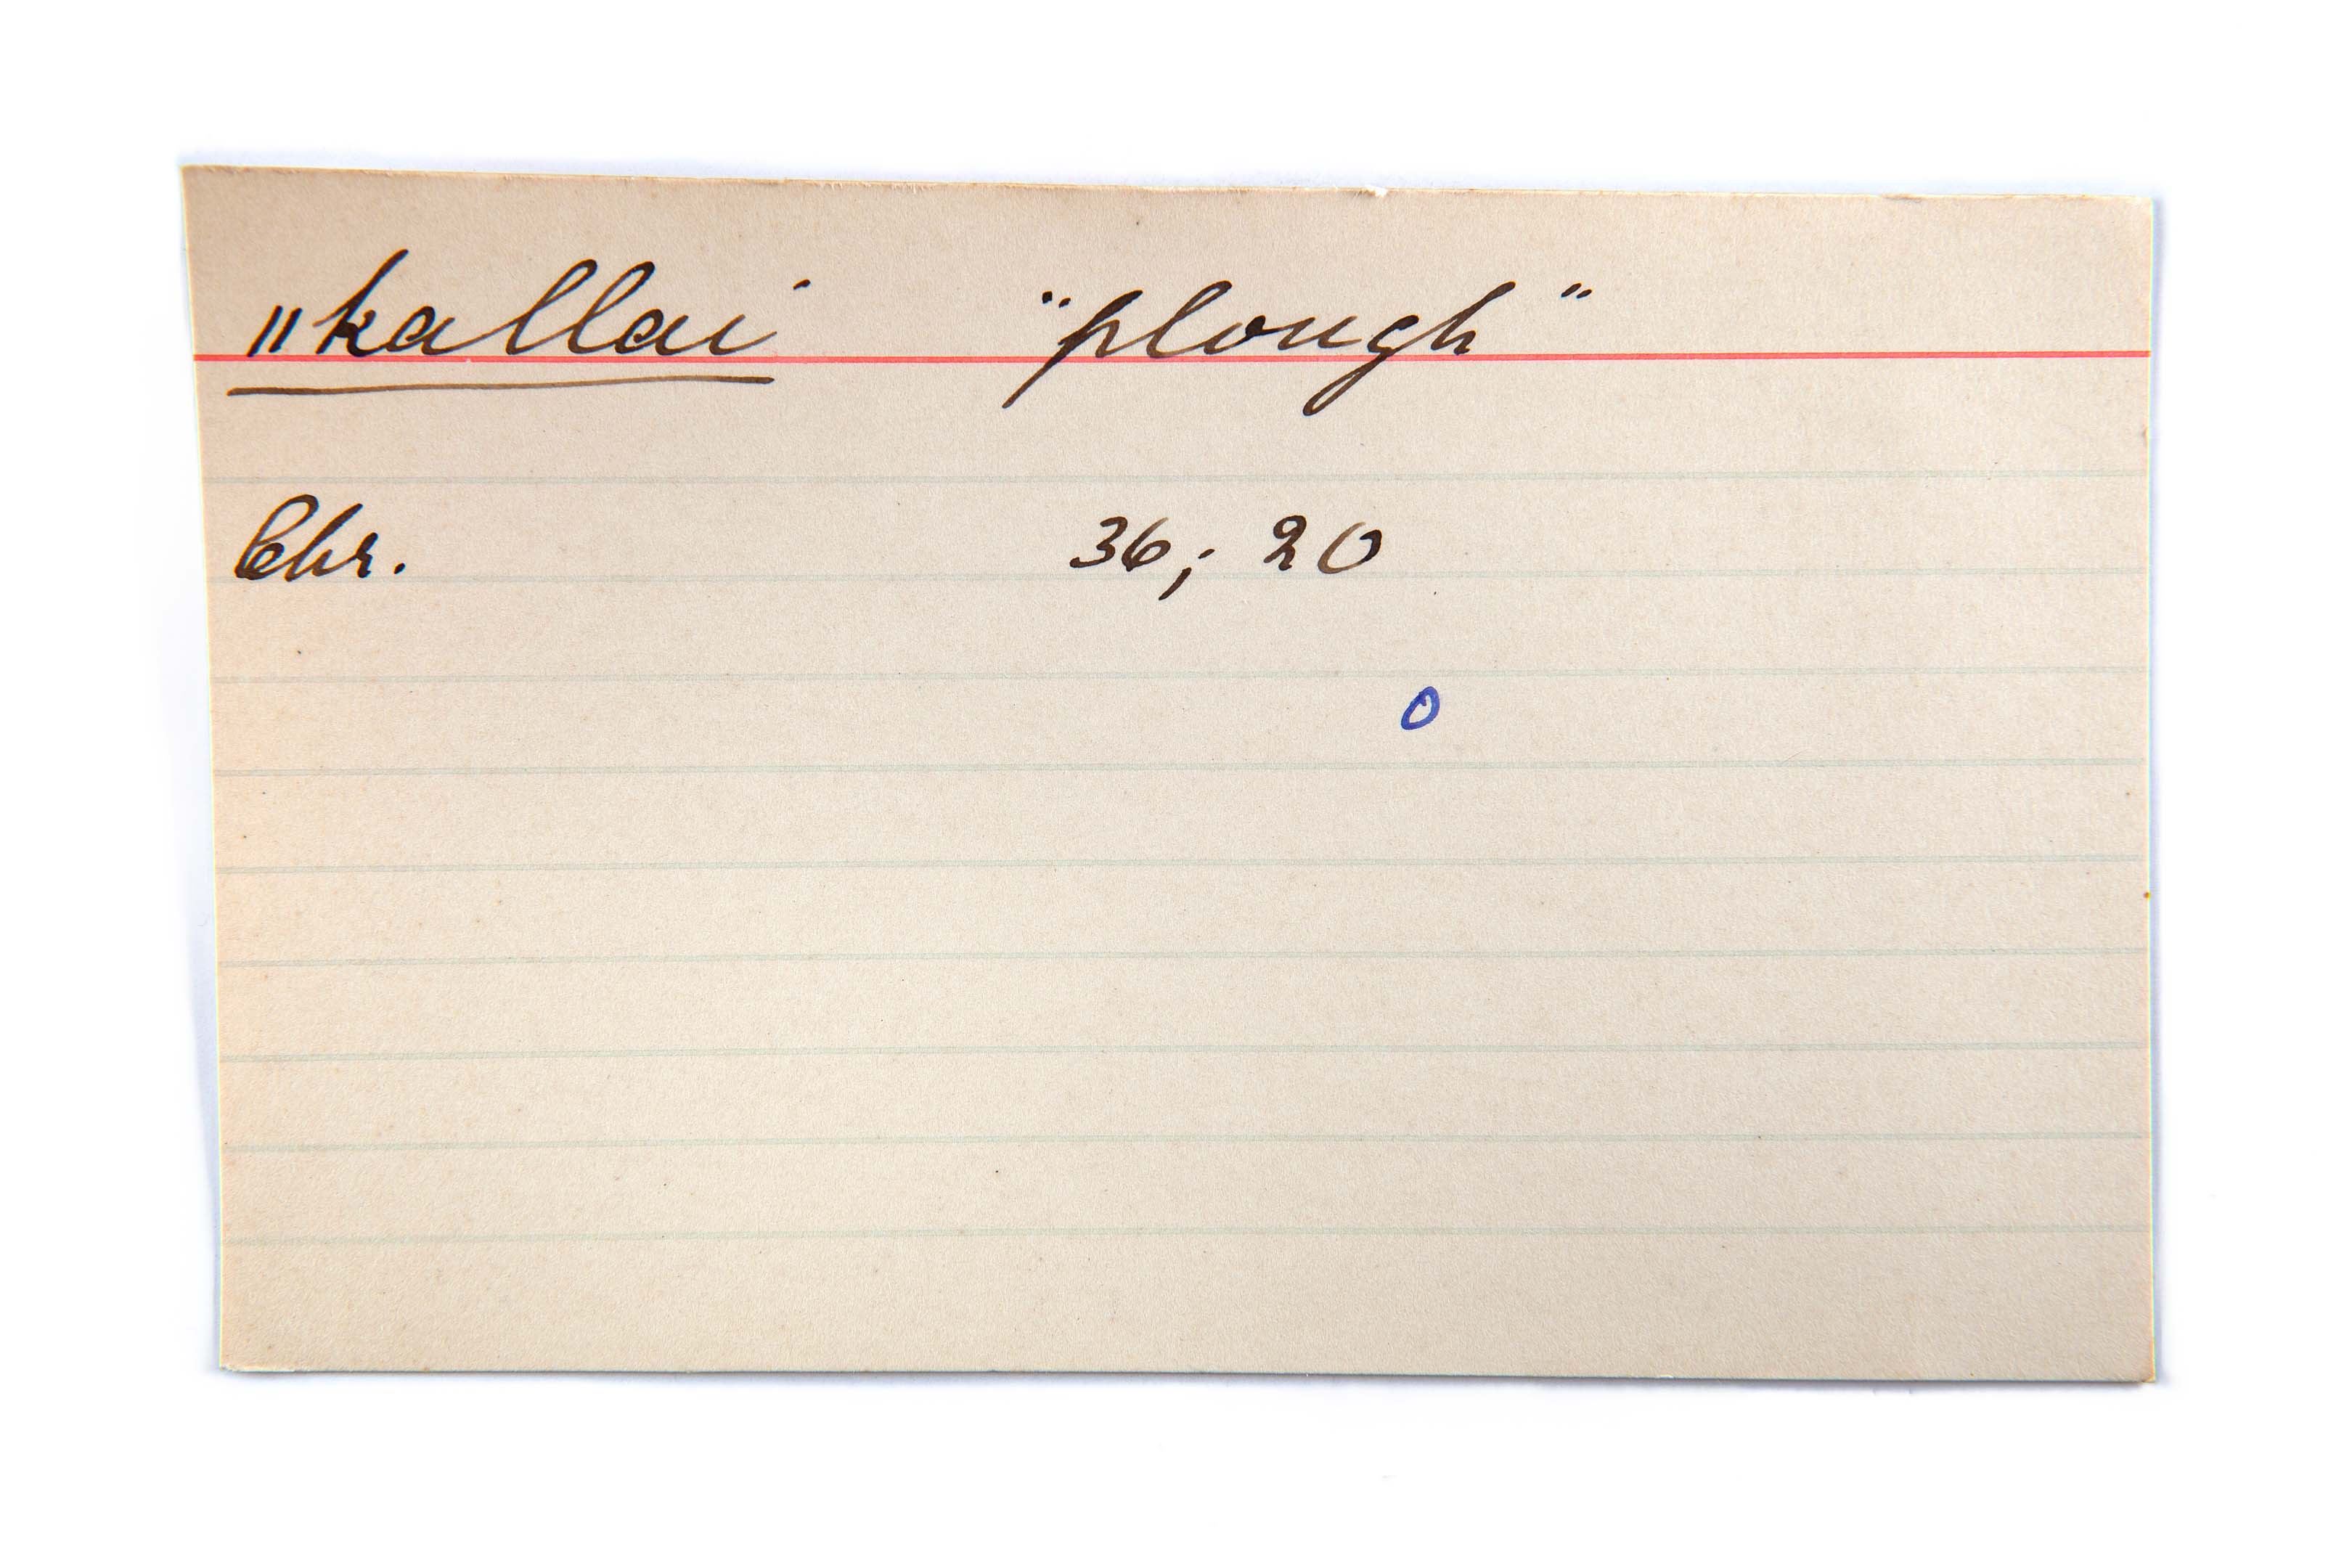 ‖kallai "plough"
Chr. 36; 20
o